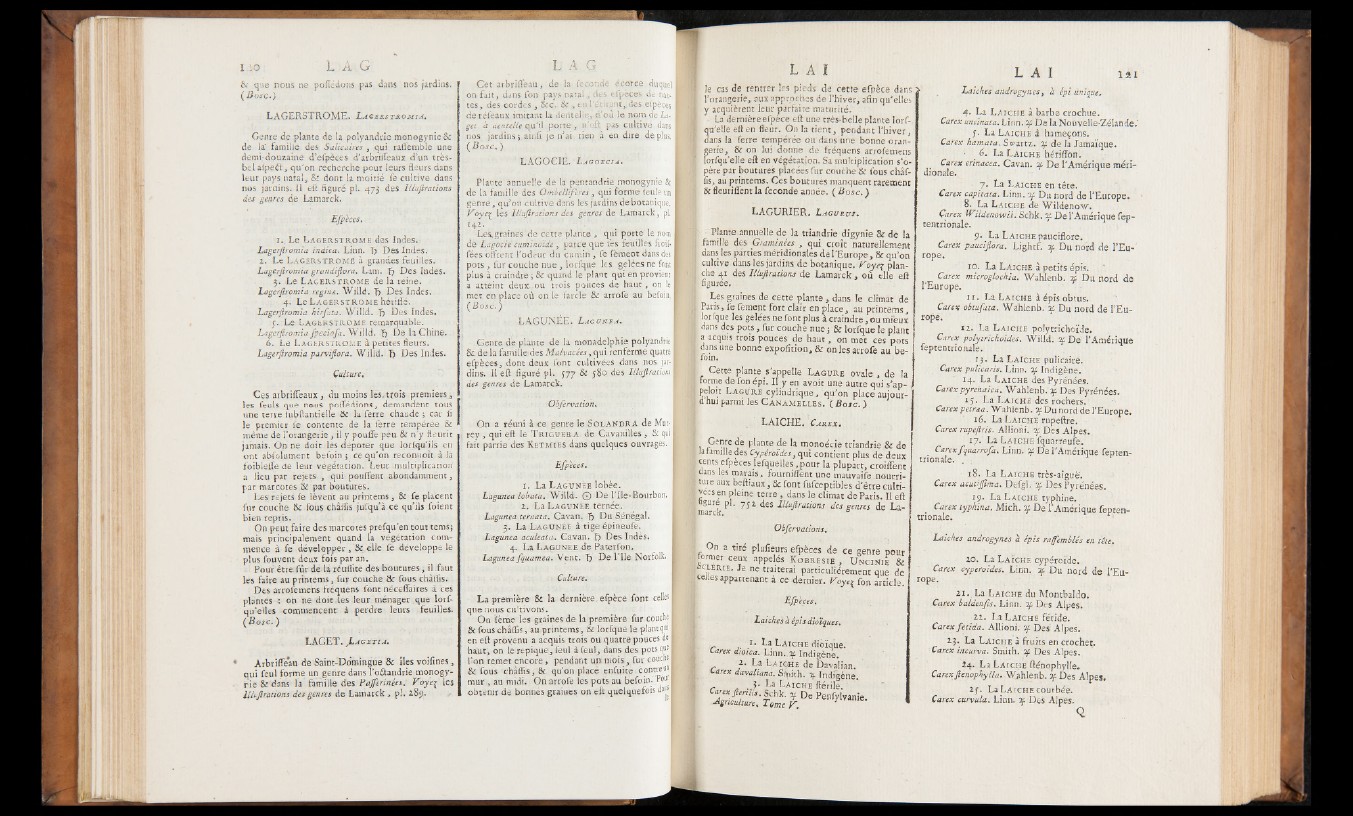 120 LAG
& que nous ne possédons pas dans nos jardins.
(Bosc.)
LAGERSTROME. LAGERSTROMIA.
Genre de plante de la polyandrie monogynie &
de la famille des Salicaires, qui rassemble une
demi-douzaine d'espèces d'arbrisseaux d'un très-
bel aspect, qu'on recherche pour leurs fleurs dans
leur pays natal, & dont la moitié se cultive dans
nos jardins. Il est figuré pl. 473 des Illustrations
des genres de Lamarck.
Espèces.
1. Le LAGERSTROME des Indes.
Lagerstromia indica. Linn. ♄ Des Indes.
2. Le LAGERSTROME à grandes feuilles.
Lagerstromia grandiflora. Lam. ♄ Des Indes.
3. Le LAGERSTROME de la reine.
Lagerstromia regina. Willd. ♄ Des Indes.
4. Le LAGERSTROME hérissé.
Lagerstromia hirsuta. Willd. ♄ Des Indes.
5. Le LAGERSTROME remarquable.
Lagerstromia speciosa. Willd. ♄ De la Chine.
6. Le LAGERSTROME à petites fleurs.
Lagerstromia parviflora. Willd. ♄ Des Indes.
Culture.
Ces arbrisseaux, du moins les trois premiers,
les seuls que nous possédions, demandent tous
une terre substantielle & la serre chaude; car si
le premier se contente de la serre tempérée &
même de l'orangerie, il y pousse peu & n'y fleurit
jamais. On ne doit les déposer que lorsqu'ils en
ont absolument besoin; ce qu'on reconnoît à la
foiblesse de leur végétation. Leur multiplication
a lieu par rejets, qui poussent abondamment,
par marcotes & par boutures.
Les rejets se lèvent au printems, & se placent
sur couche & sous châssis jusqu'à ce qu'ils soient
bien repris.
On peut faire des marcotes presqu'en tout tems;
mais principalement quand la végétation com-
mence à se développer, & elle se développe le
plus souvent deux fois par an.
Pour être sûr de la réussite des boutures, il faut
les faire au printems, sur couche & sous châssis.
Des arrosemens fréquens sont nécessaires à ces
plantes: on ne doit les leur ménager que lors-
qu'elles commencent à perdre leurs feuilles.
(Bosc.)
LAGET. LAGETTA.
Arbrisseau de Saint-Domingue & îles voisines,
qui seul forme un genre dans l'octandrie monogy-
nie & dans la famille des Passerinées. Voyez les
Illustrations des genres de Lamarck, pl. 289.
LAG
Cet arbrisseau, de la seconde écorce duquel
on fait, dans son pays natal, des espèces de nat-
tes, des cordes, &c. &, en l'étirant, des espèces
de réseaux imitant la dentelle, d'où le nom de La-
get à dentelle qu'il porte, n'est pas cultivé dans
nos jardins; ainsi je n'ai rien à en dire de plus.
(Bosc.)
LAGOCIE. LAGOECIA.
Plante annuelle de la pentandrie monogynie &
de la famille des Ombellifères, qui forme seule un
genre, qu'on cultive dans les jardins de botanique.
Voyez les Illustrations des genres de Lamarck, pl.
142.
Les graines de cette plante, qui porte le nom
de Lagocie cuminoïde, parce que ses feuilles frois-
sées offrent l'odeur du cumin, se sèment dans des
pots, sur couche nue, lorsque les gelées ne sont
plus à craindre; & quand le plant qui en provient
a atteint deux ou trois pouces de haut, on le
met en place où on le sarcle & arrose au besoin.
(Bosc.)
LAGUNÉE. LAGUNEA.
Genre de plante de la monadelphie polyandrie
& de la famille des Malvacées, qui renferme quatre
espèces, dont deux sont cultivées dans nos jar-
dins. Il est figuré pl. 577 & 580 des Illustrations
des genres de Lamarck.
Observation.
On a réuni à ce genre le SOLANDRA de Mur-
rey, qui est le TRIGUERA de Cavanilles, & qui
fait partie des KETMIES dans quelques ouvrages.
Espèces.
1. La LAGUNÉE lobée.
Lagunea lobata. Willd. ⊙ De l'île-Bourbon.
2. La LAGUNÉE ternée.
Lagunea ternata. Cavan. ♄ Du Sénégal.
3. La LAGUNÉE à tige épineuse.
Lagunea aculeata. Cavan. ♄ Des Indes.
4. La LAGUNÉE de Paterson.
Lagunea squamea. Vent. ♄ De l'île Norfolk.
Culture.
La première & la dernière espèce sont celles
que nous cultivons.
On sème les graines de la première sur couche
& sous châssis, au printems, & lorsque le plant qui
en est provenu a acquis trois ou quatre pouces de
haut, on le repique, seul à seul, dans des pots que
l'on remet encore, pendant un mois, sur couche
& sous châssis, & qu'on place ensuite contre un
mur, au midi. On arrose les pots au besoin. Pour
obtenir de bonnes graines on est quelquefois dans
le
LAI
le cas de rentrer les pieds de cette espèce dans
l'orangerie, aux approches de l'hiver, afin qu'elles
y acquièrent leur parfaite maturité.
La dernière espèce est une très-belle plante lors-
qu'elle est en fleur. On la tient, pendant l'hiver,
dans la serre tempérée ou dans une bonne oran-
gerie, & on lui donne de fréquens arrosemens
lorsqu'elle est en végétation. Sa multiplication s'o-
père par boutures placées sur couche & sous châs-
sis, au printems. Ces boutures manquent rarement
& fleurissent la seconde année. (Bosc.)
LAGURIER. LAGURUS.
Plante annuelle de la triandrie digynie & de la
famille des Graminées, qui croît naturellement
dans les parties méridionales de l'Europe, & qu'on
cultive dans les jardins de botanique. Voyez plan-
che 41 des Illustrations de Lamarck, où elle est
figurée.
Les graines de cette plante, dans le climat de
Paris, se sèment fort clair en place, au printems,
lorsque les gelées ne sont plus à craindre, ou mieux
dans des pots, sur couche nue; & lorsque le plant
a acquis trois pouces de haut, on met ces pots
dans une bonne exposition, & on les arrose au be-
soin.
Cette plante s'appelle LAGURE ovale, de la
forme de son épi. Il y en avoit une autre qui s'ap-
peloit LAGURE cylindrique, qu'on place aujour-
d'hui parmi les CANAMELLES. (Bosc.)
LAICHE. CAREX.
Genre de plante de la monoécie triandrie & de
la famille des Cypéroïdes, qui contient plus de deux
cents espèces lesquelles, pour la plupart, croissent
dans les marais, fournissent une mauvaise nourri-
ture aux bestiaux, & sont susceptibles d'être culti-
vées en pleine terre, dans le climat de Paris. Il est
figuré pl. 752 des Illustrations des genres de La-
marck.
Observations.
On a tiré plusieurs espèces de ce genre pour
former ceux appelés KOBRESIE, UNCINIE &
SCLERIE. Je ne traiterai particulièrement que de
celles appartenant à ce dernier. Voyez son article.
Espèces.
Laiches à épis dioïques.
1. La LAICHE dioïque.
Carex dioica. Linn. ♃ Indigène.
2. La LAICHE de Davalian.
Carex davaliana. Smith. ♃ Indigène.
3. La LAICHE stérile.
Carex sterilis. Schk. ♃ De Pensylvanie.
Agriculture. Tome V.
LAI 121
Laiches androgynes, à épi unique.
4. La LAICHE à barbe crochue.
Carex uncinata. Linn. ♃ De la Nouvelle-Zélande.
5. La LAICHE à hameçons.
Carex hamata. Swartz. ♃ de la Jamaïque.
6. La LAICHE hérisson.
Carex erinacea. Cavan. ♃ De l'Amérique méri-
dionale.
7. La LAICHE en tête.
Carex capitata. Linn. ♃ Du nord de l'Europe.
8. La LAICHE de Wildenow.
Carex Wildenowii. Schk. ♃ De l'Amérique sep-
tentrionale.
9. La LAICHE pauciflore.
Carex pauciflora. Lightf. ♃ Du nord de l'Eu-
rope.
10. La LAICHE à petits épis.
Carex microglochia. Wahlenb. ♃ Du nord de
l'Europe.
11. La LAICHE à épis obtus.
Carex obtusata. Wahlenb. ♃ Du nord de l'Eu-
rope.
12. La LAICHE polytrichoïde.
Carex polytrichoidea. Willd. ♃ De l'Amérique
septentrionale.
13. La LAICHE pulicaire.
Carex pulicaris. Linn. ♃ Indigène.
14. La LAICHE des Pyrénées.
Carex pyrenaica. Wahlenb. ♃ Des Pyrénées.
15. La LAICHE des rochers.
Carex petraa. Wahlenb. ♃ Du nord de l'Europe.
16. La LAICHE rupestre.
Carex rupestris. Allioni. ♃ Des Alpes.
17. La LAICHE squarreuse.
Carex squarrosa. Linn. ♃ De l'Amérique septen-
trionale.
18. La LAICHE très-aiguë.
Carex acutissima. Desgl. ♃ Des Pyrénées.
19. La LAICHE typhine.
Carex typhina. Mich. ♃ De l'Amérique septen-
trionale.
Laiches androgynes à épis rassemblés en tête.
20. La LAICHE cypéroïde.
Carex cyperoides. Linn. ♃ Du nord de l'Eu-
rope.
21. La LAICHE du Montbaldo.
Carex baldensis. Linn. ♃ Des Alpes.
22. La LAICHE fétide.
Carex fetida. Allioni. ♃ Des Alpes.
23. La LAICHE à fruits en crochet.
Carex incurva. Smith. ♃ Des Alpes.
24. La LAICHE sténophylle.
Carex stenophylla. Wahlenb. ♃ Des Alpes.
25. La LAICHE courbée.
Carex curvula. Linn. ♃ Des Alpes.
Q